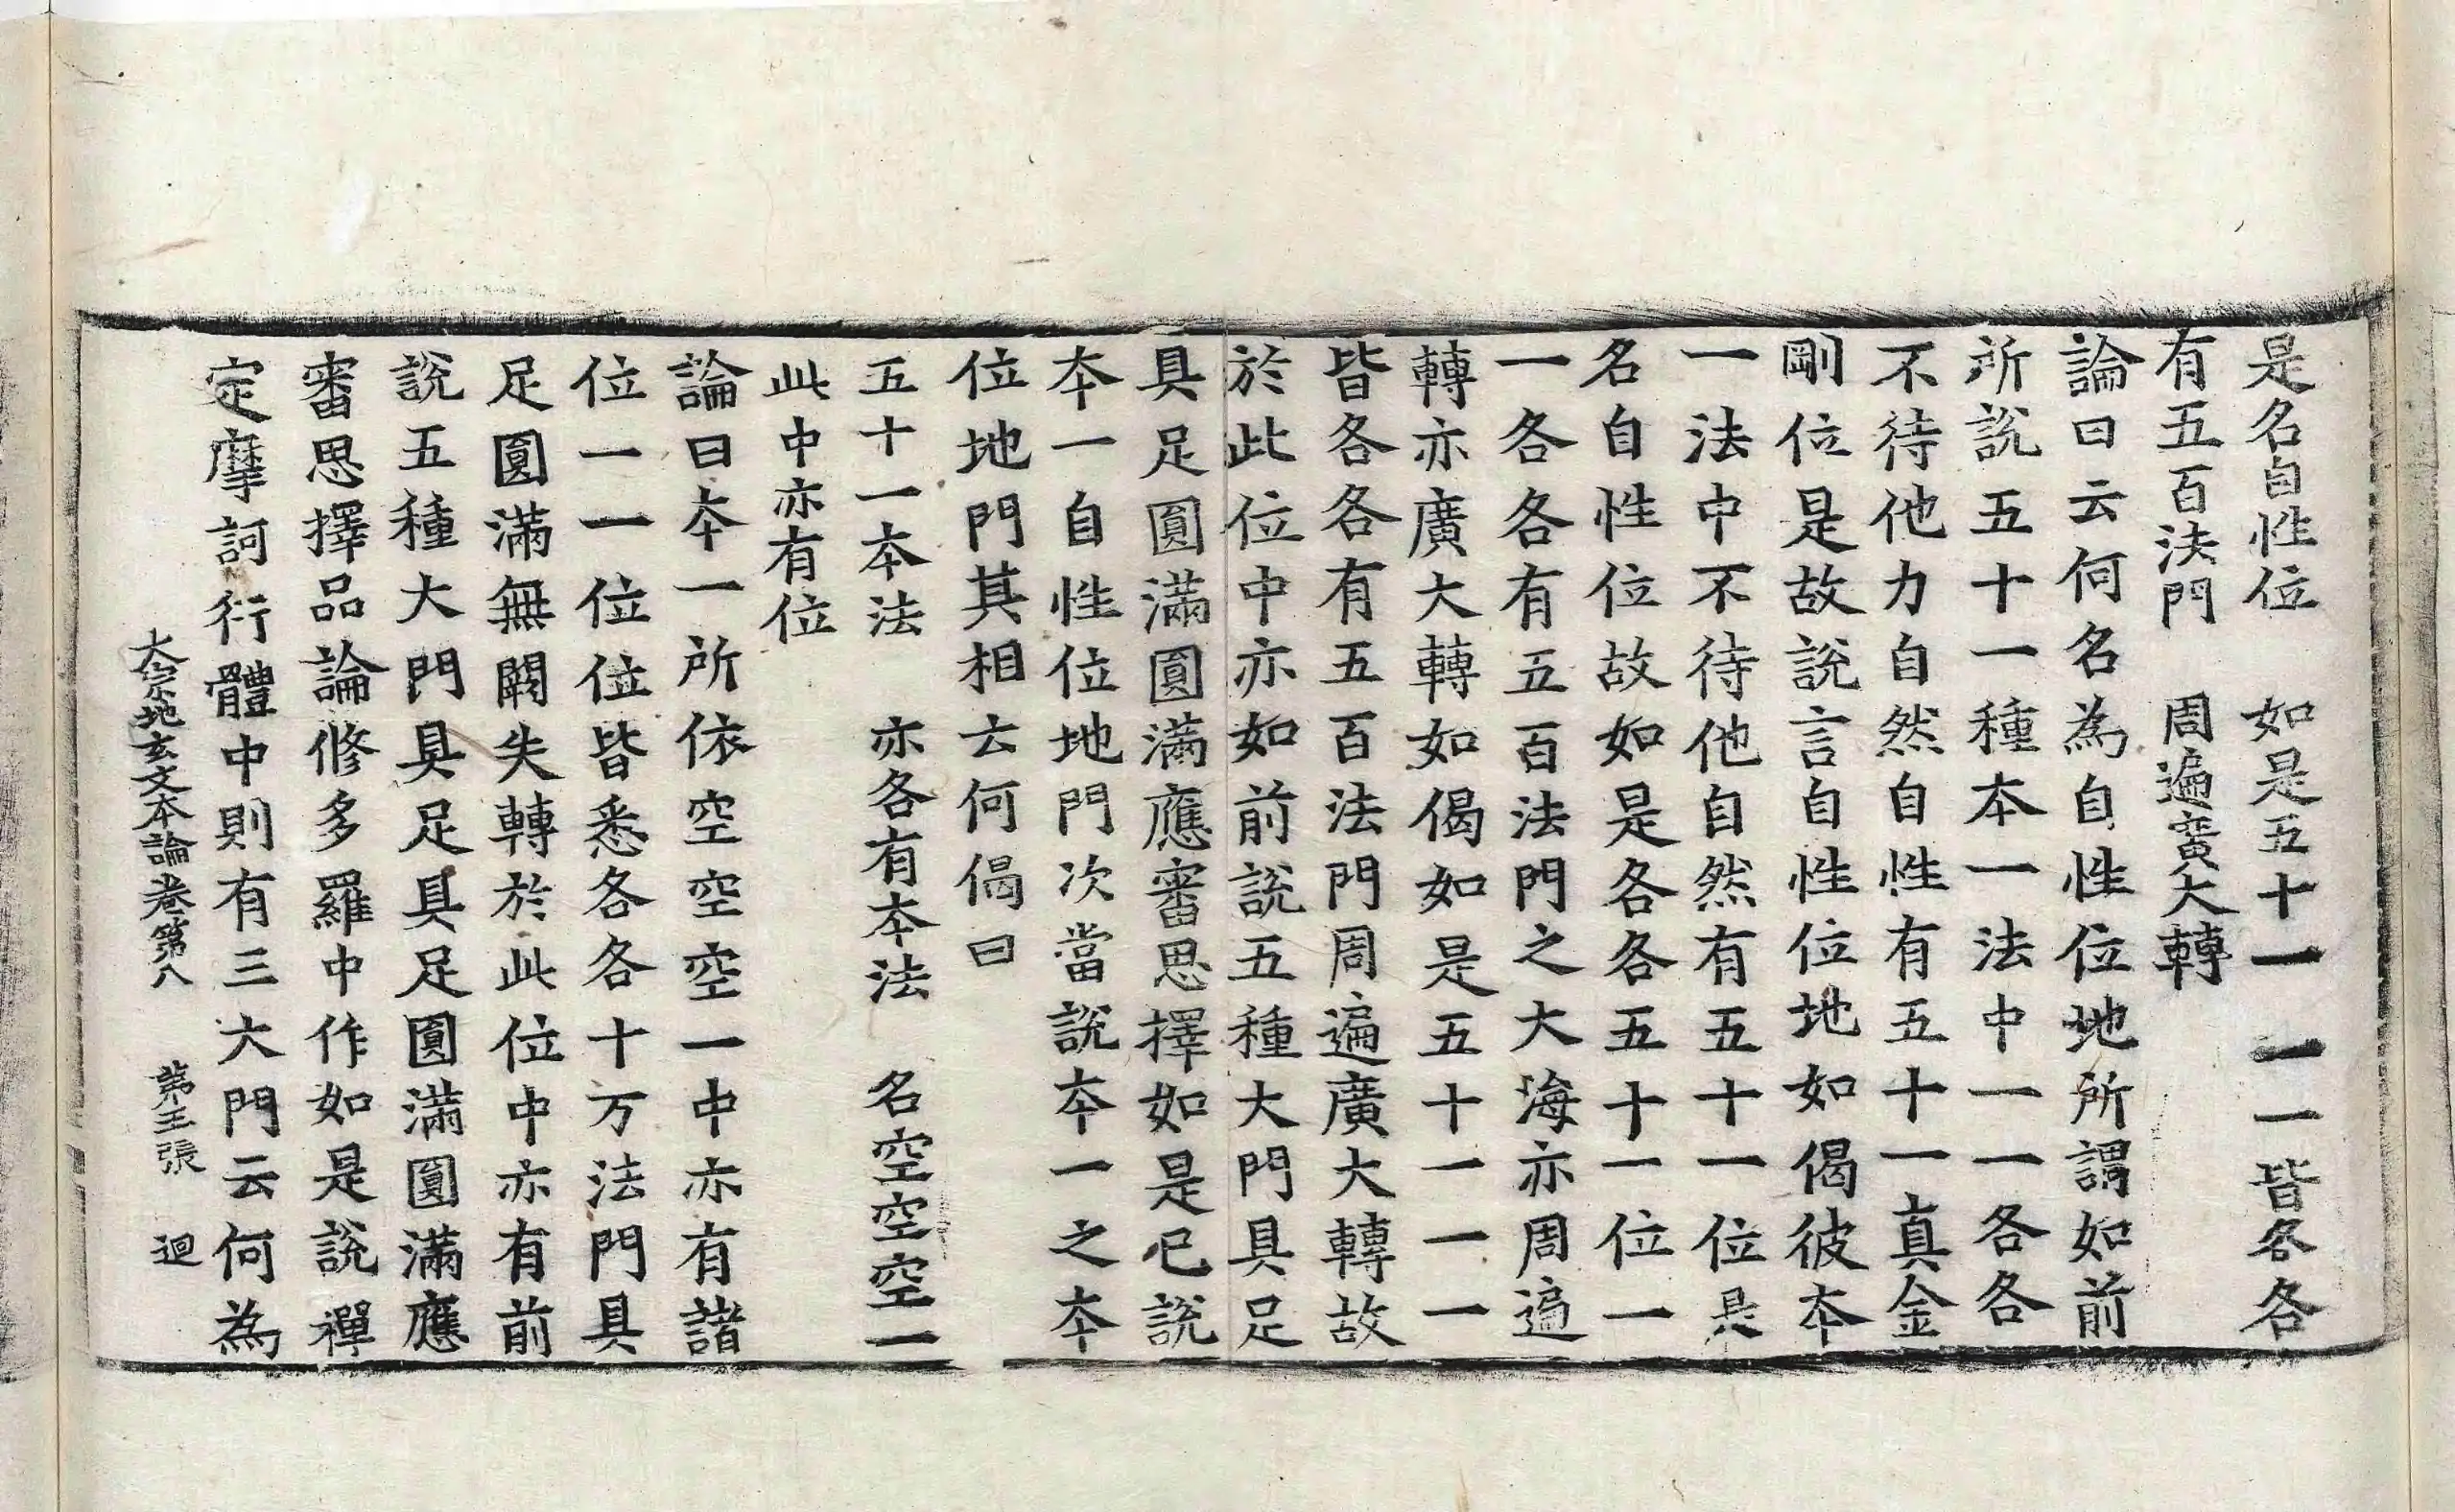 是名自性位　如是五十一　一一皆各各
有五百法門　周遍廣大轉
論曰云何名為自性位地所謂如前
所說五十一種本一法中一一各各
不待他力自然自性有五十一真金
剛位是故說言自性位地如偈彼本
一法中不待他自然有五十一位是
名自性位故如是各各五十一位一
一各各有五百法門之大海亦周遍
轉亦廣大轉如偈如是五十一一一
皆各各有五百法門周遍廣大轉故
於此位中亦如前說五種大門具足
具足圓滿圓滿應審思擇如是已說
本一自性位地門次當說本一之本
位地門其相云何偈曰
五十一本法　亦各有本法　名空空空一
此中亦有位
論曰本一所依空空空一中亦有諸
位一一位位皆悉各各十万法門具
足圓滿無闕失轉於此位中亦有前
說五種大門具足具足圓滿圓滿應
審思擇品論修多羅中作如是說禪
定摩訶衍體中則有三大門云何為
大宗地玄文本論卷第八　第五張　迴